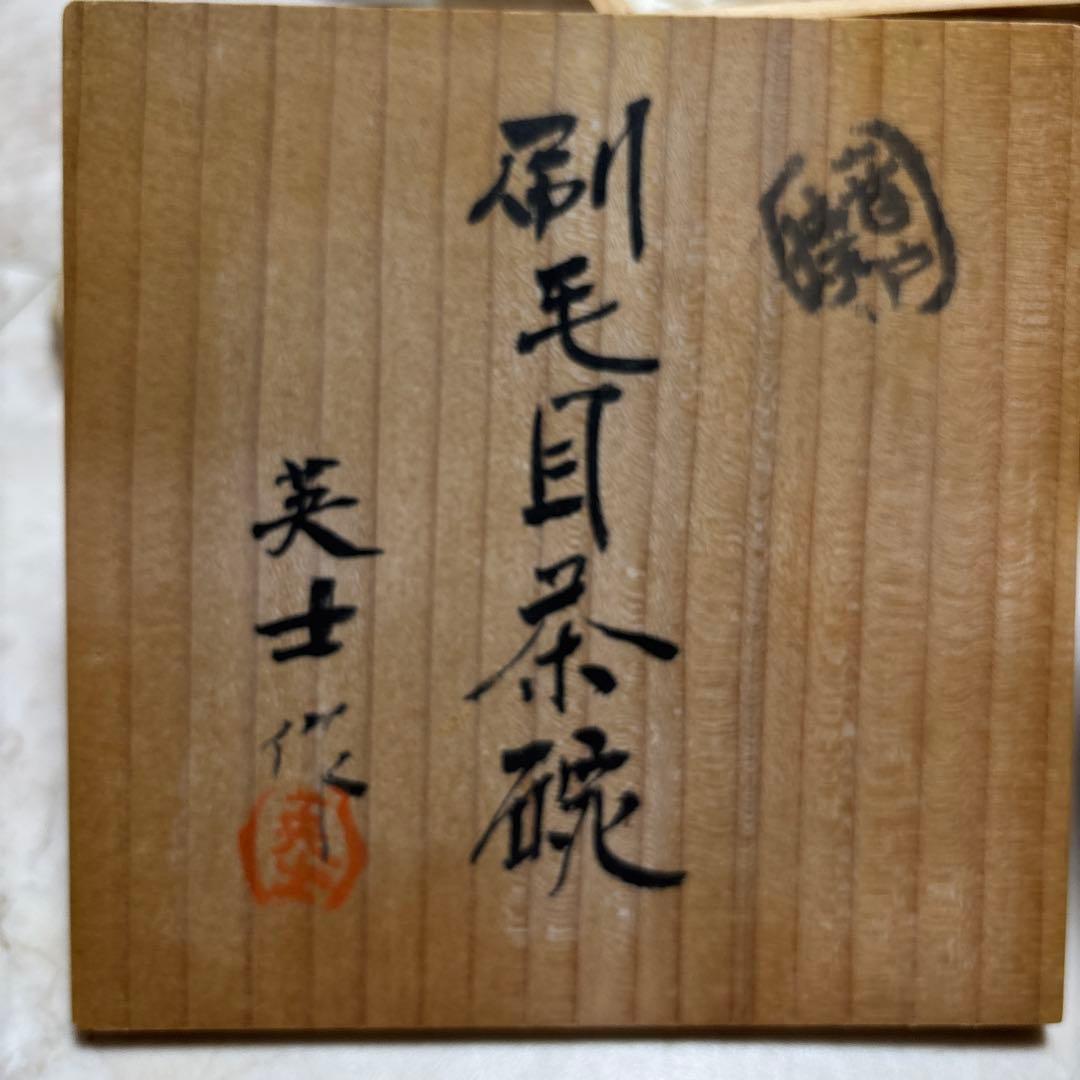 刷毛目茶碗
英士作
英士